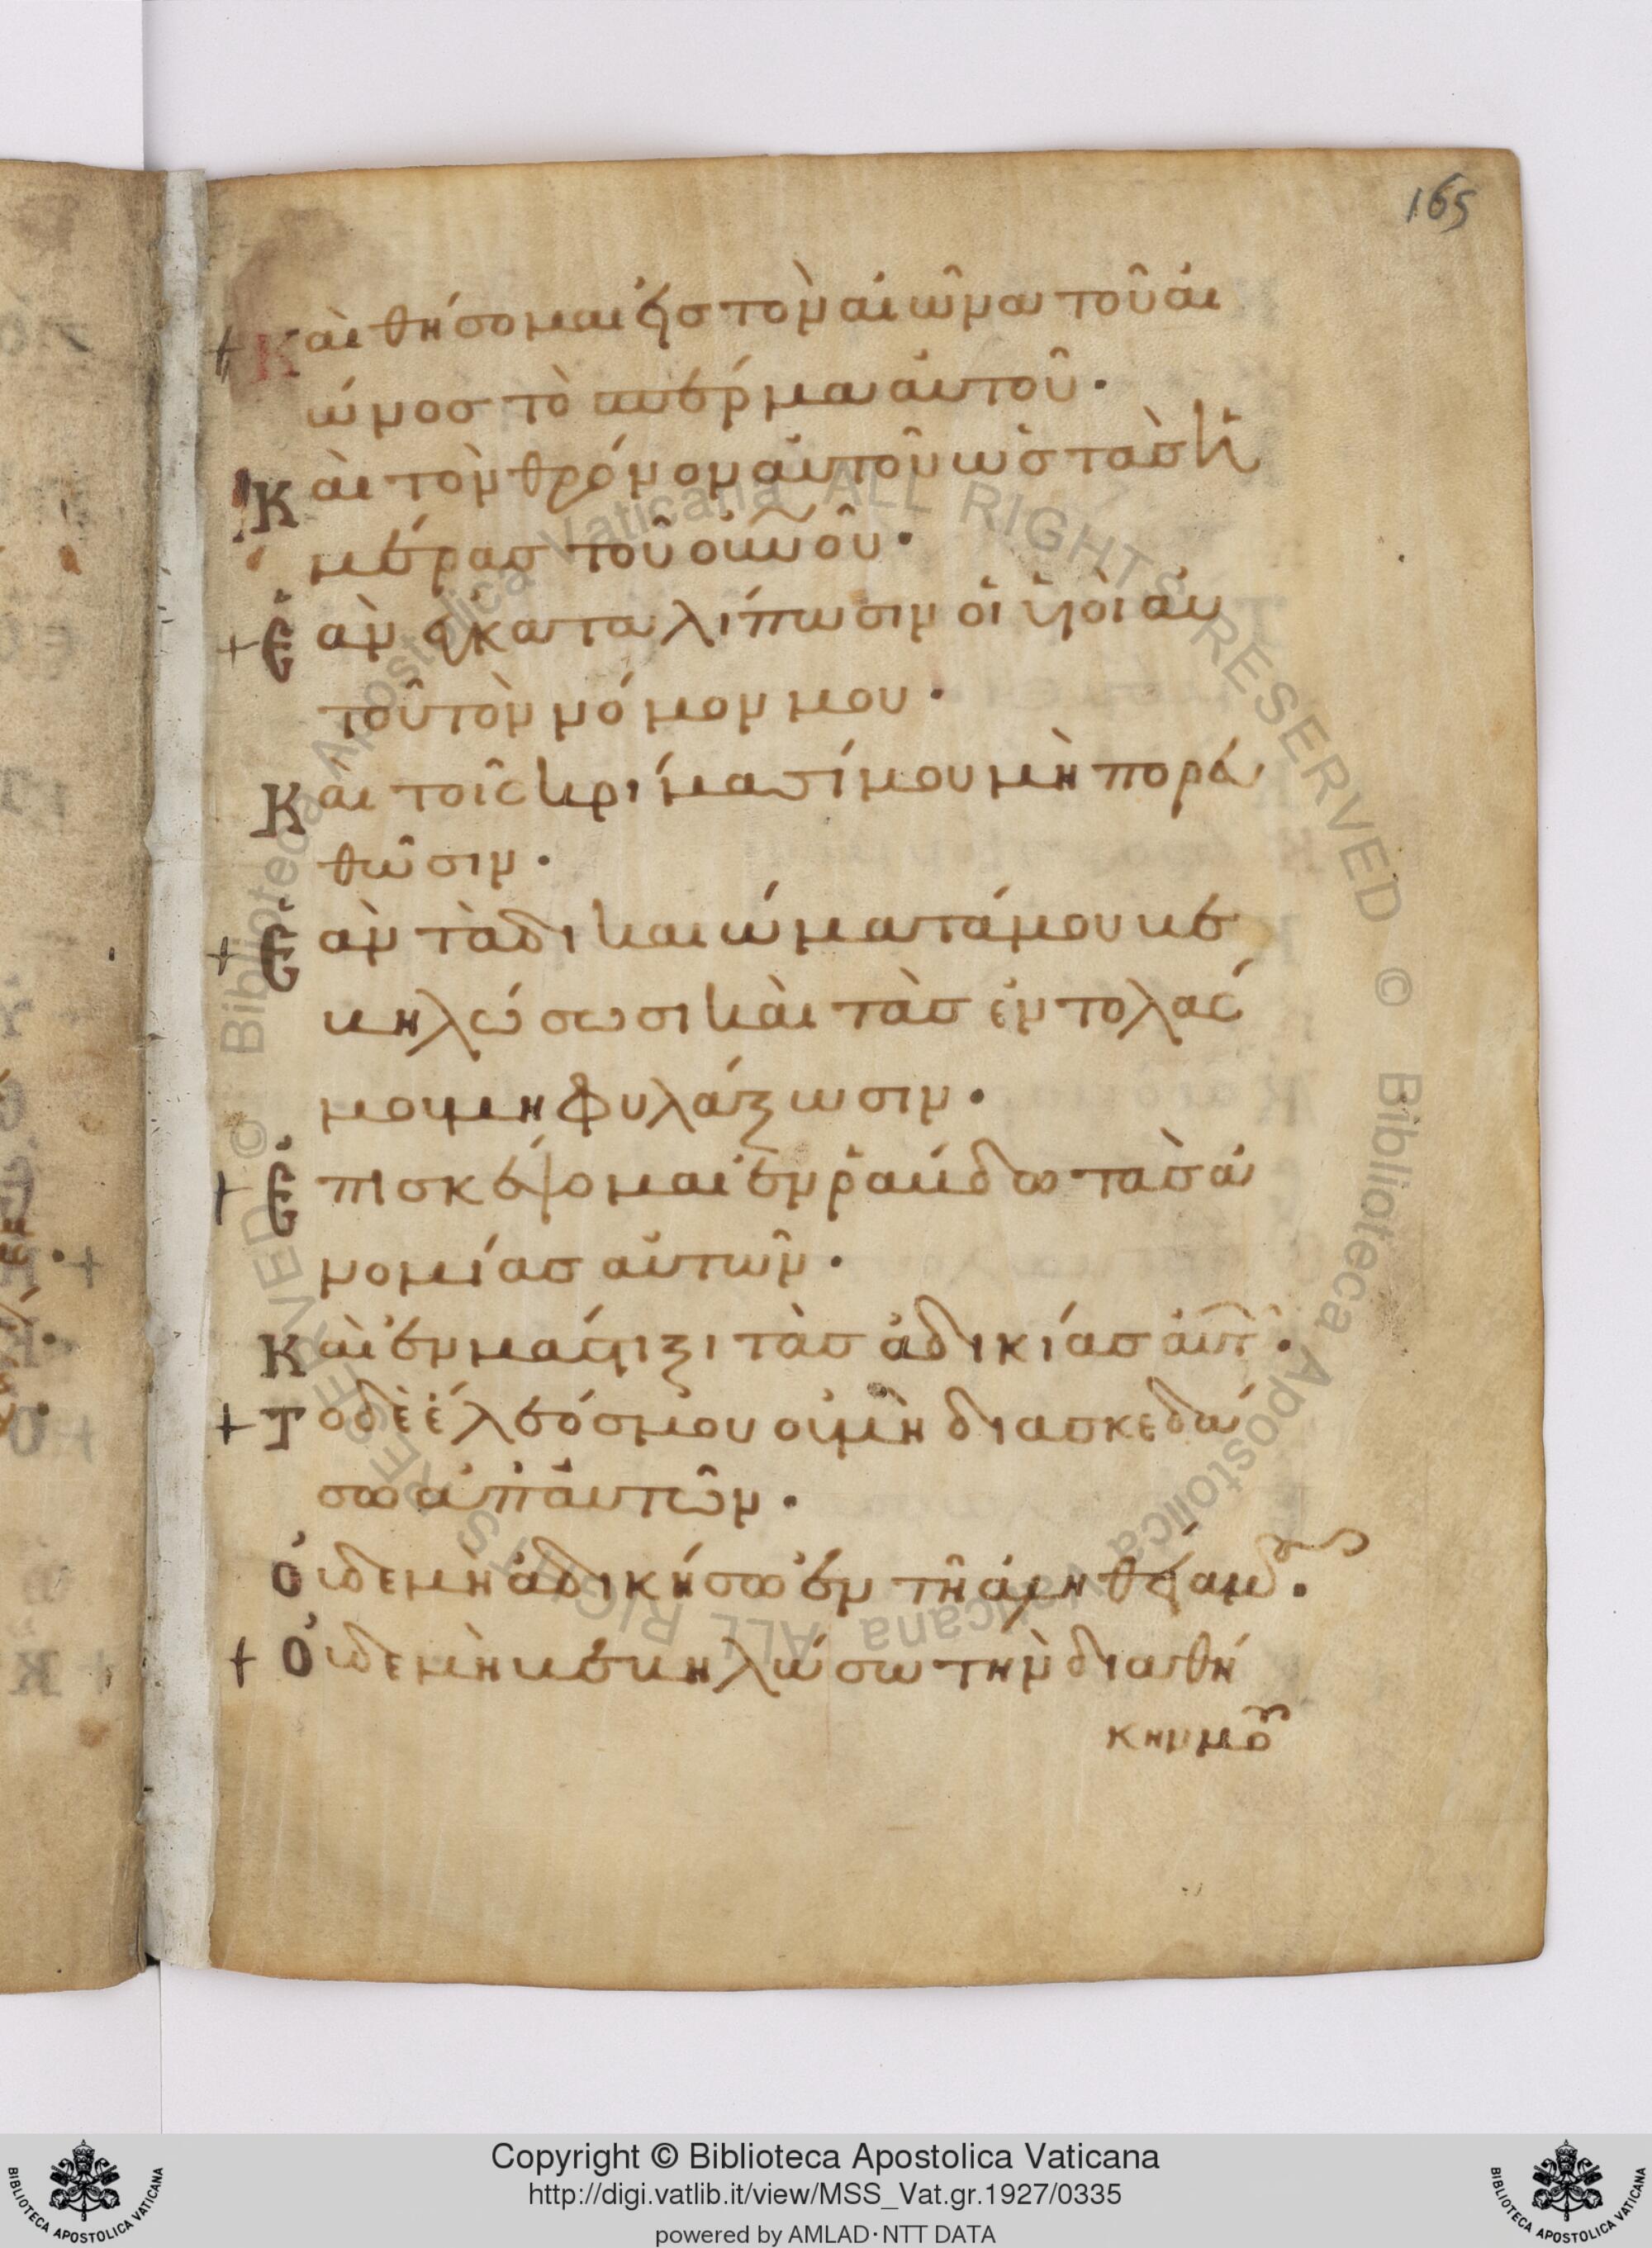 165
+ Καὶ θήσομαι εἰσ τὸν αἰῶνα τοῦ αἰ
ώνοσ τὸ σπέρμα αὐτοῦ·
Καὶ τὸν θρόνον αὐτοῦ ὡσ τὰσ ἡ
μέρασ τοῦ οὐ̅νοῦ·
+ Ἐὰν ἐγκαταλίπωσιν οἱ ὑιοὶ αὐ
τοῦ τὸν νόμον μου·
Καὶ τοῖς κρίμασί μου μὴ πορευ
θῶσιν·
+ Ἐὰν τὰ δικαιώματά μου βε
βηλώσωσι καὶ τὰσ ἐντολάσ
μου μη φυλάξωσιν·
+ Ἐπισκέψομαι ἐν ῥάβδω τὰσ ἀ
νομίασ αὐτῶν·
Καὶ ἐν μάστιξι τὰσ ἀδικίασ αὐτ̑·
+ Τὸ δὲ ἔλεόσ μου οὐ μὴ διασκεδά
σω ἀπ' ἀυτῶν·
Οὐδε μὴ ἀδικήσω ἐν τῆ ἀληθεία μου·
+ Οὐδε μὴ βεβηλώσω τὴν διαθή
κην μου
Copyright © Biblioteca Apostolica Vaticana
http://digi.vatlib.it/view/MSS_Vat.gr.1927/0335
powered by AMLAD·NTT DATA
BIBLIOTECA APOSTOLICA VATICANA
BIBLIOTECA APOSTOLICA VATICANA
© Biblioteca Apostolica Vaticana ALL RIGHTS RESERVED
© Biblioteca Apostolica Vaticana ALL RIGHTS RESERVED